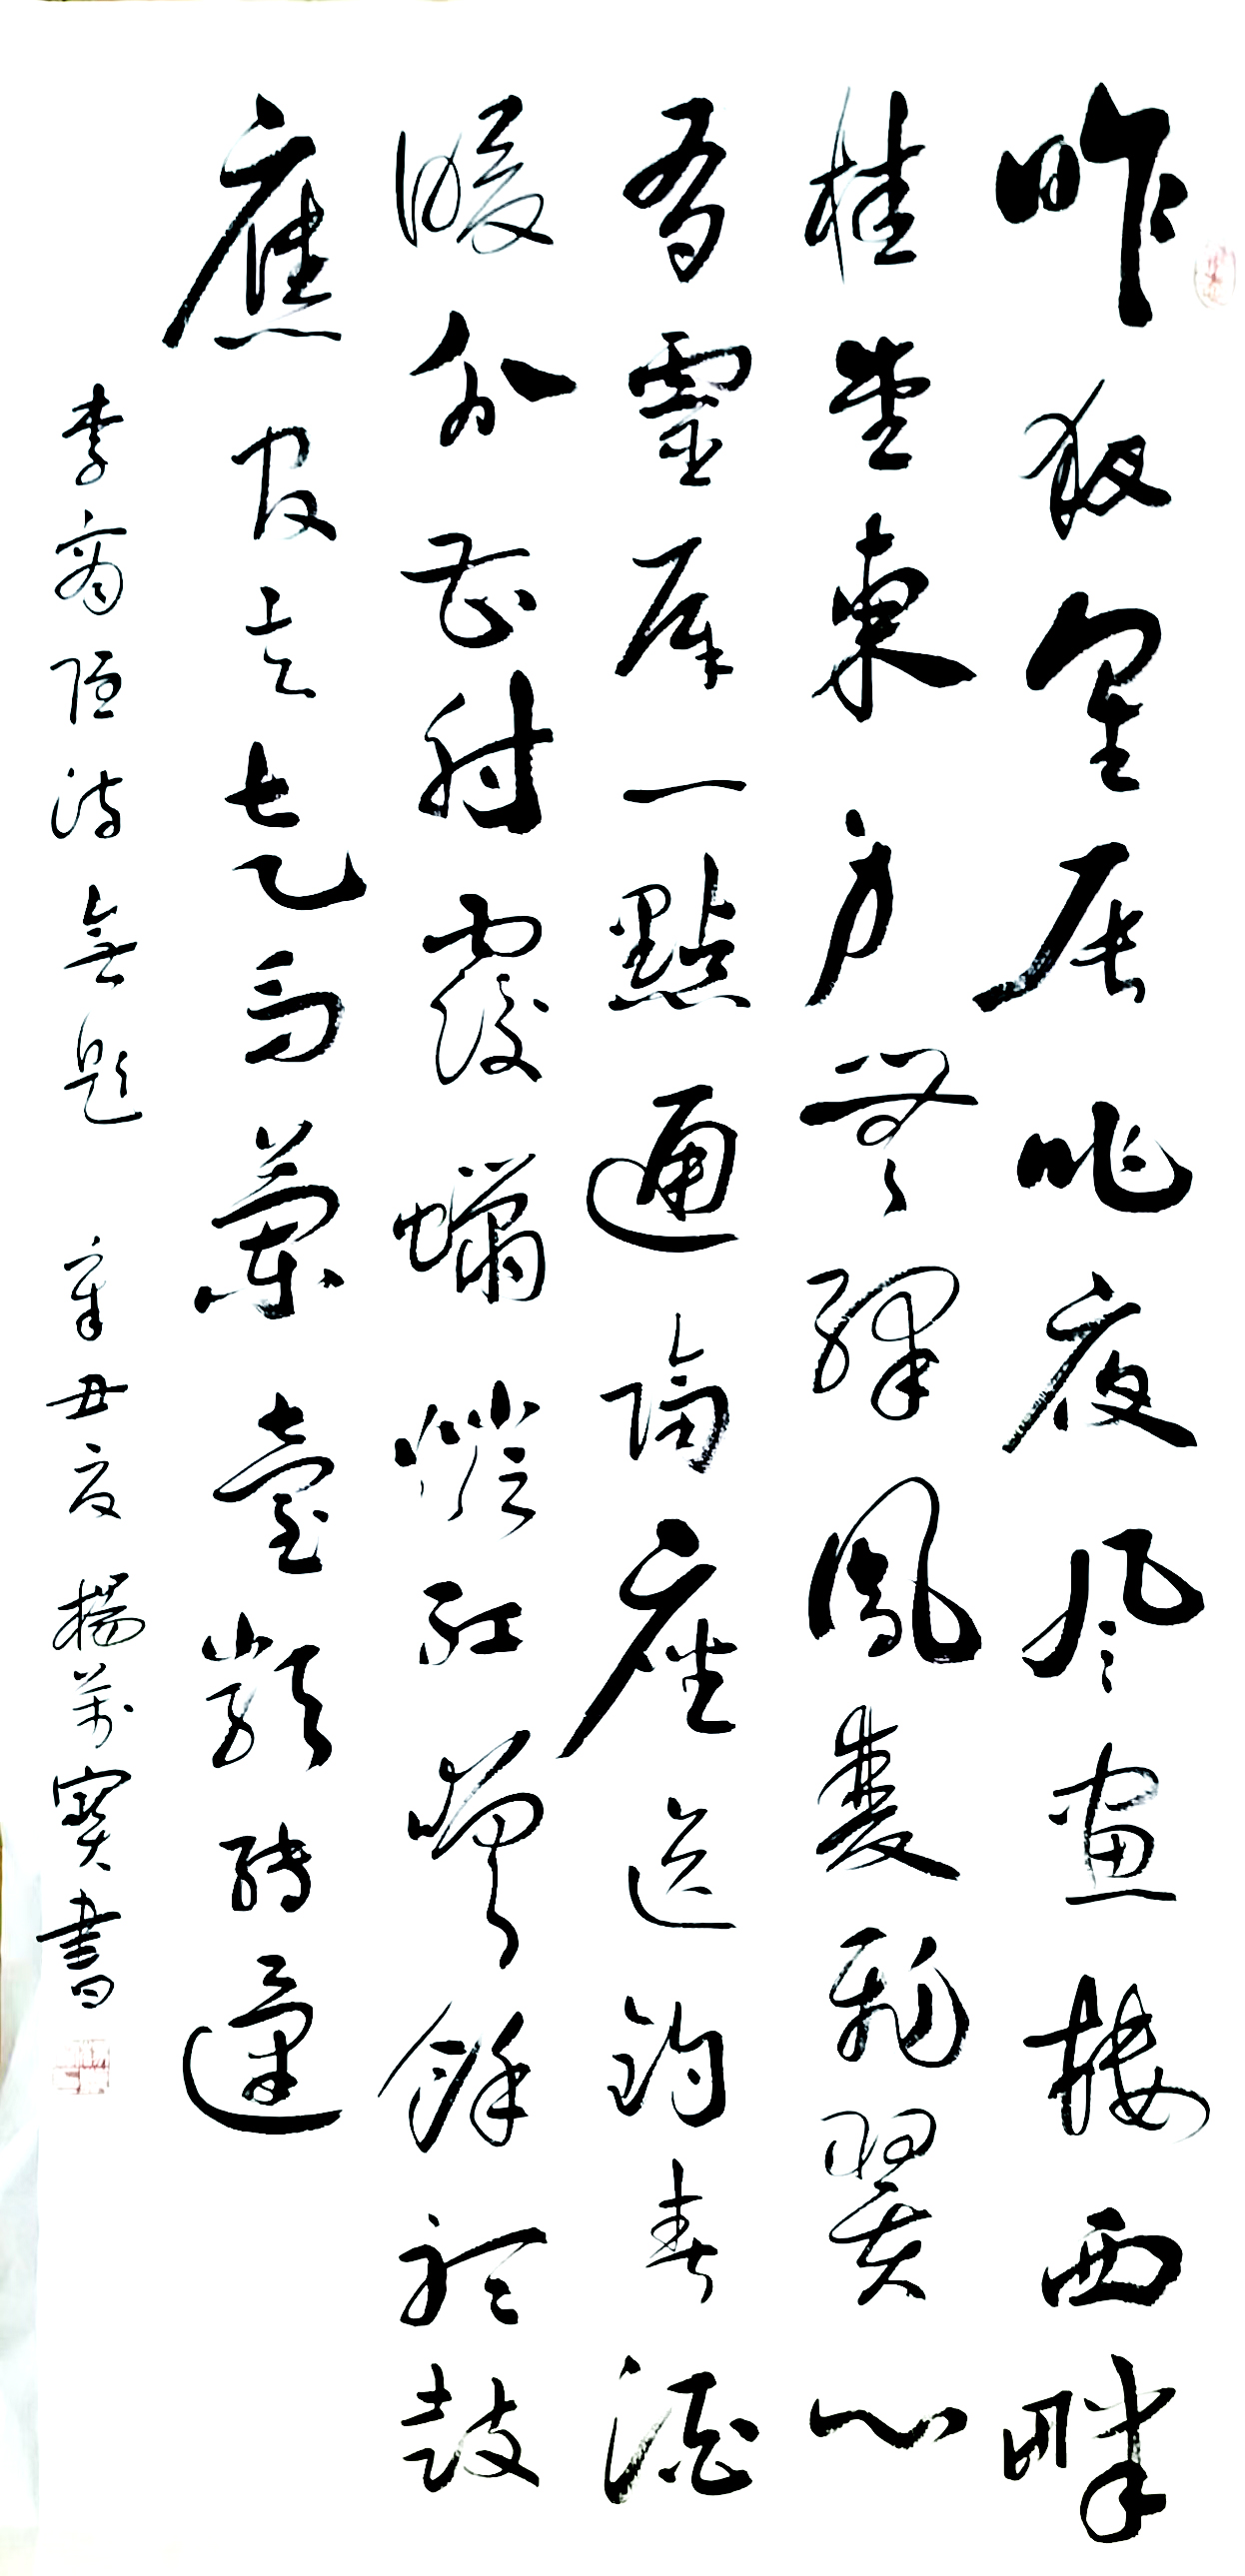 昨夜星辰昨夜風畫樓西畔
桂堂東身無彩鳳雙飛翼心
有靈犀一點通隔座送鈎春酒
暖分曹射覆蠟燈紅嗟余聽鼓
應官去走馬蘭臺類轉蓬
李商隱詩無題 辛丑夏 楊萬寶書